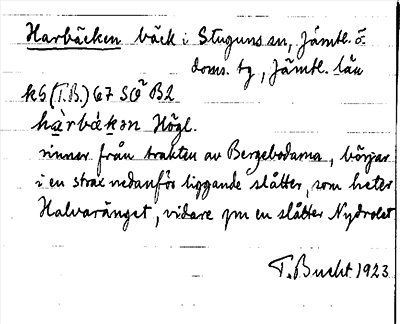 Harbäcken bäck i Stuguns sn, Jämtl. ö.
doms. tg, Jämtl. län
k6 (T.B.) 67 SÖ B2
hàrbäkən Högl.
rinner från trakten av Bergebodarna, börjar
i en strax nedanför liggande slåtter, som heter
Halvaränget, vidare gm en slåtter Nydrolet
T. Bucht 1923